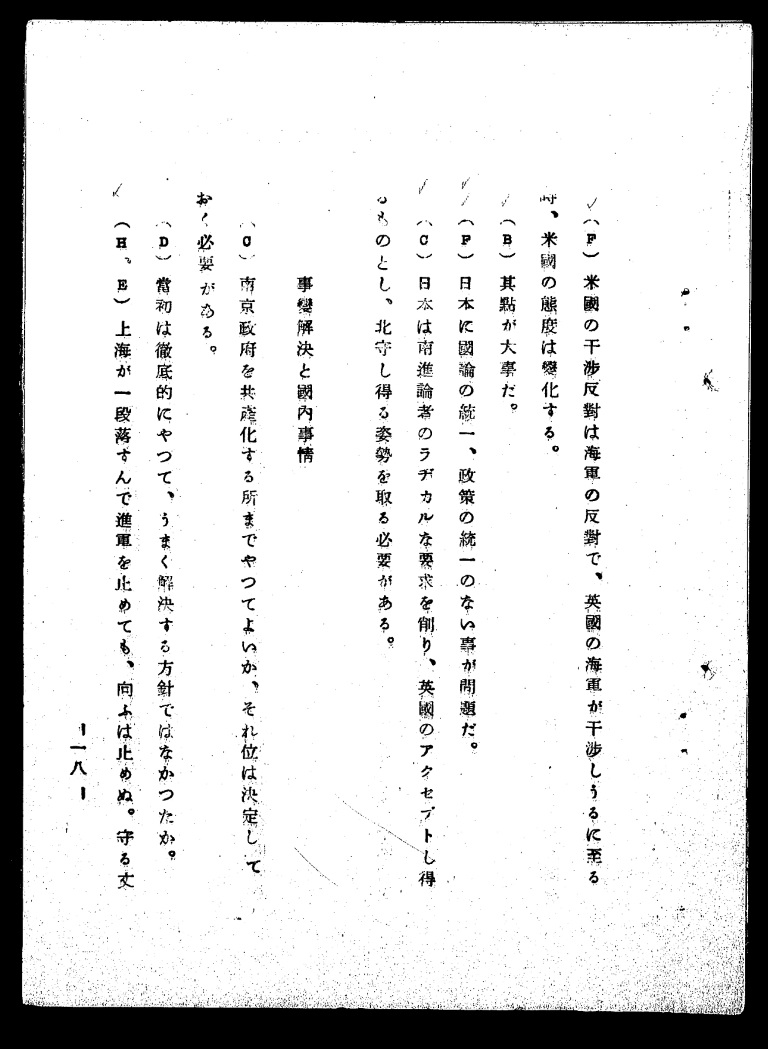 (F) 米國の干渉反對は海軍の反對で、英國の海軍が干渉しうるに至る
時、米國の態度は變化する。
(B) 其點が大事だ。
(F) 日本に國論の統一、政策の統一のない事が問題だ。
(C) 日本は南進論者のラヂカルな要求を削り、英國のアクセプトし得
るものとし、北守し得る姿勢を取る必要がある。
事變解決と國內事情
(C) 南京政府を共產化する所までやつてよいか、それ位は決定して
おく必要がある。
(D) 當初は徹底的にやつて、うまく解決する方針ではなかつたか。
(H、E) 上海が一段落すんで進軍を止めても、向ふは止めぬ。守る丈
ー一八ー